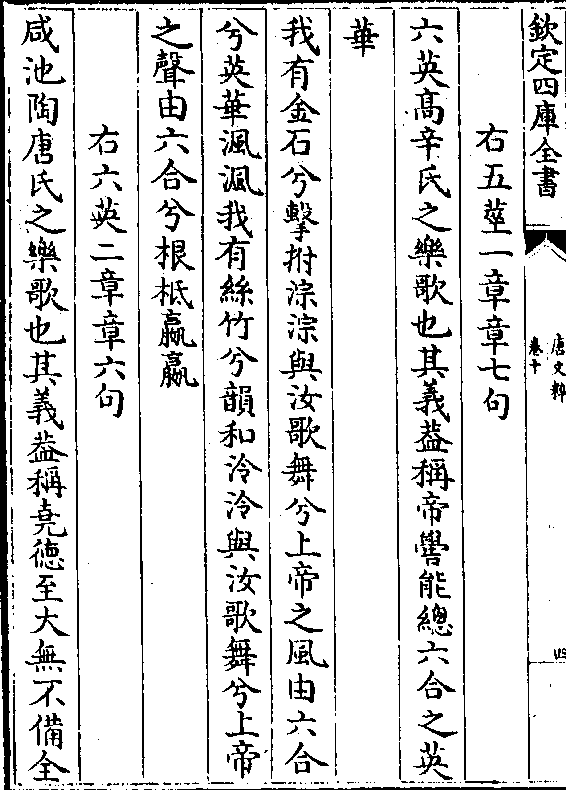 欽定四庫全書
唐文粹
卷十
右五莖一章章七句
六英髙辛氏之樂歌也其義葢稱帝嚳能總六合之英
華
我有金石兮擊拊淙淙與汝歌舞兮上帝之風由六合
兮英華渢渢我有絲竹兮韻和泠泠與汝歌舞兮上帝
之聲由六合兮根柢嬴嬴
右六英二章章六句
咸池陶唐氏之樂歌也其義葢稱堯德至大無不備全